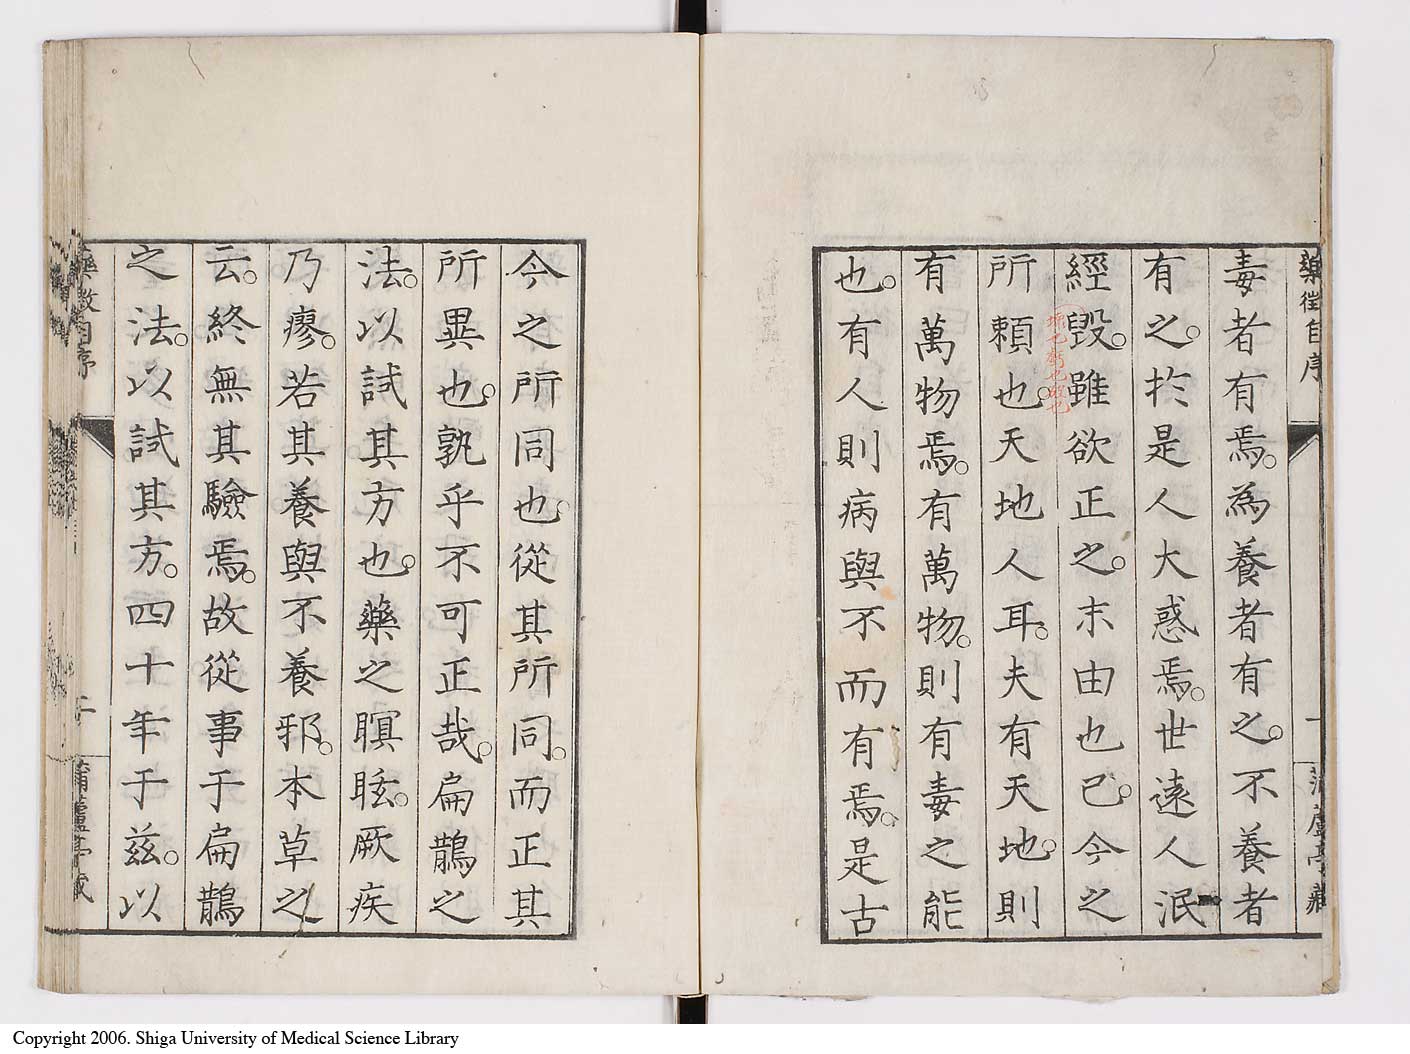 藥徴自序 一 蒲蘆亭藏
毒者有焉。為養者有之。不養者
有之。於是人大惑焉。世遠人泯
經毀。雖欲正之。末由也已。今之
所賴也。天地人耳。夫有天地。則
有萬物焉。有萬物。則有毒之能
也。有人則病與不而有焉。是古
今之所同也。從其所同。而正其
所異也。孰乎不可正哉。扁鵲之
法。以試其方也。藥之瞑眩。厥疾
乃瘳。若其養與不養邪。本草之
云。終無其驗焉。故從事于扁鵲
之法。以試其方。四十年于茲。以
藥徴自序 二 蒲蘆亭藏
Copyright 2006. Shiga University of Medical Science Library